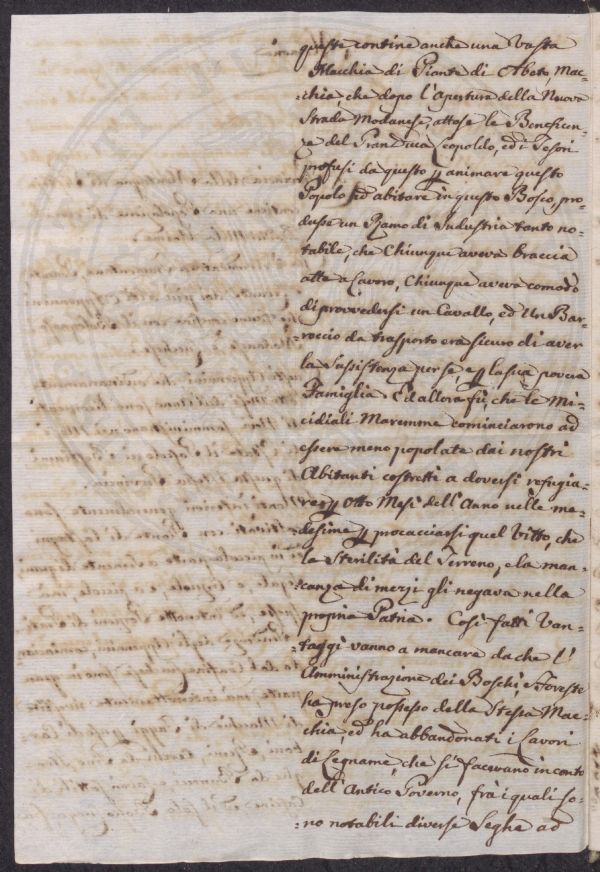 queste contine anche una Vasta
Macchia di Piante di Abeto, Mac-
=chia, che dopo l'Apertura della Nuova
Strada Modanese, attose le Beneficen-
=ze del Gran Duca Leopoldo, ed i Tesori
profusi da questo p animare questo
Popolo ed abitare in questo Bosco, pro-
=dusse un Ramo di Industria tanto no-
=tabile, che Chiunque aveva braccia
atte a Lavoro, Chiunque aveva comodo
di provvedersi un Cavallo, ed un Bar-
=roccio da trasporto era sicuro di aver
la Sussistenza per se, e p la sua povera
Famiglia. E d'allora fù, che le Mi-
=cidiali Maremme cominciarono ad
essere meno popolate dai nostri
Abitanti costretti a doversi refugia-
=re p Otto Mesi dell'Anno nelle me-
=desime p procacciarsi quel Vitto, che
la Sterilità del Terreno, e la man-
=canza di mezzi gli negava nella
propria Patria. Così fatti Van-
=taggi vanno a mancare da che l'
Amministrazione dei Boschi, e Foreste
ha preso possesso della Stessa Mac-
=chia, ed ha abbandonati i Lavori
di Legname, che si facevano in conto
dell'Antico Governo, frà i quali so-
=no notabili diverse Seghe ad